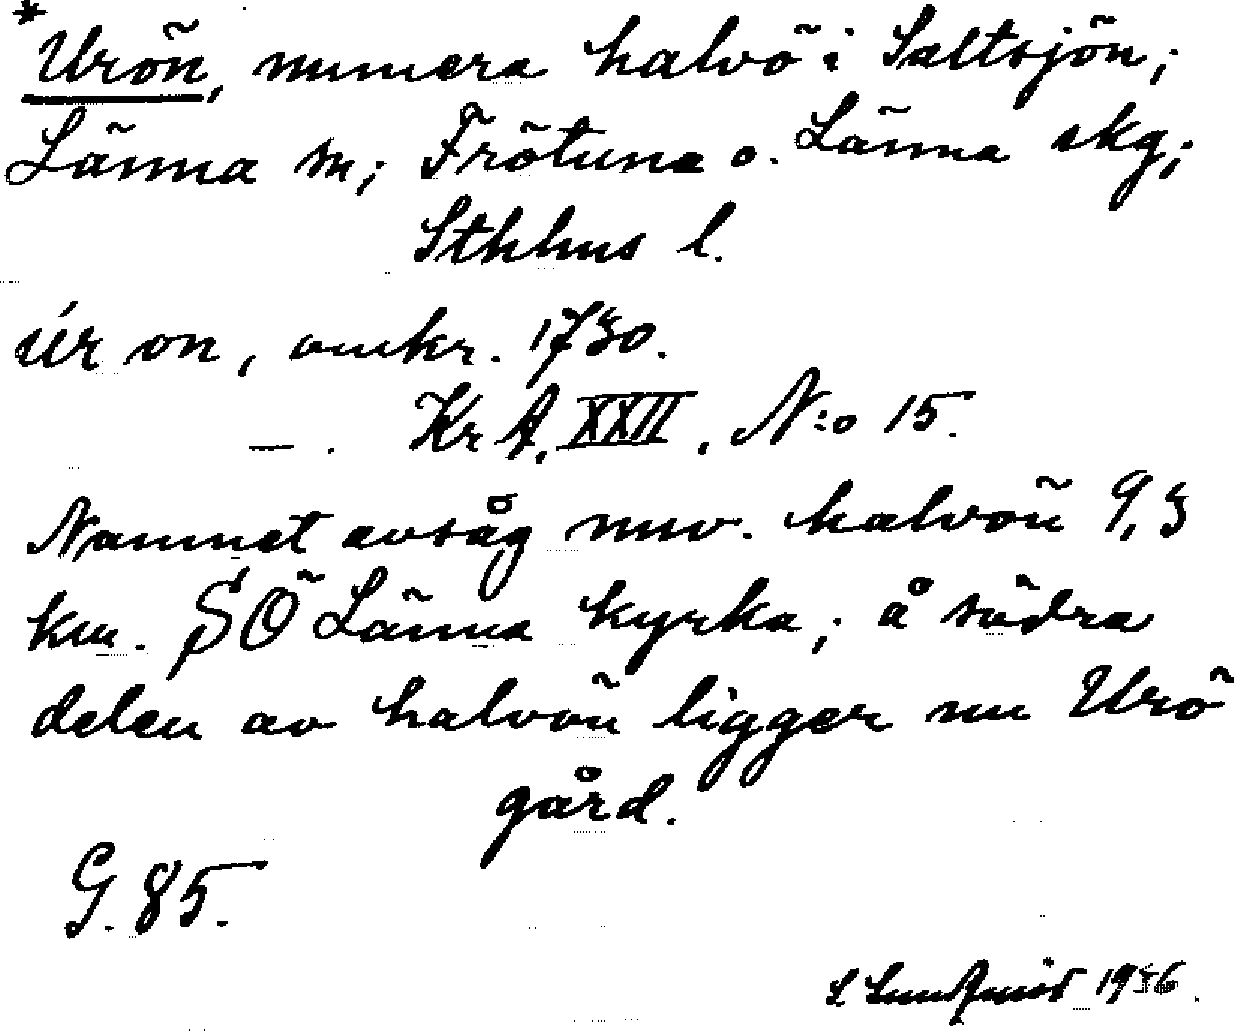 *Urön, numera halvö i Saltsjön;
Länna sn; Frötuna o. Länna skg;
Sthlms l.
úr ön, omkr. 1730.
— . KrA, XXII, N:o 15.
Namnet avsåg nuv. halvön 9,3
km. SÖ Länna kyrka; å södra
delen av halvön ligger nu Urö
gård.
G. 85.
S. Lundqvist 1936.